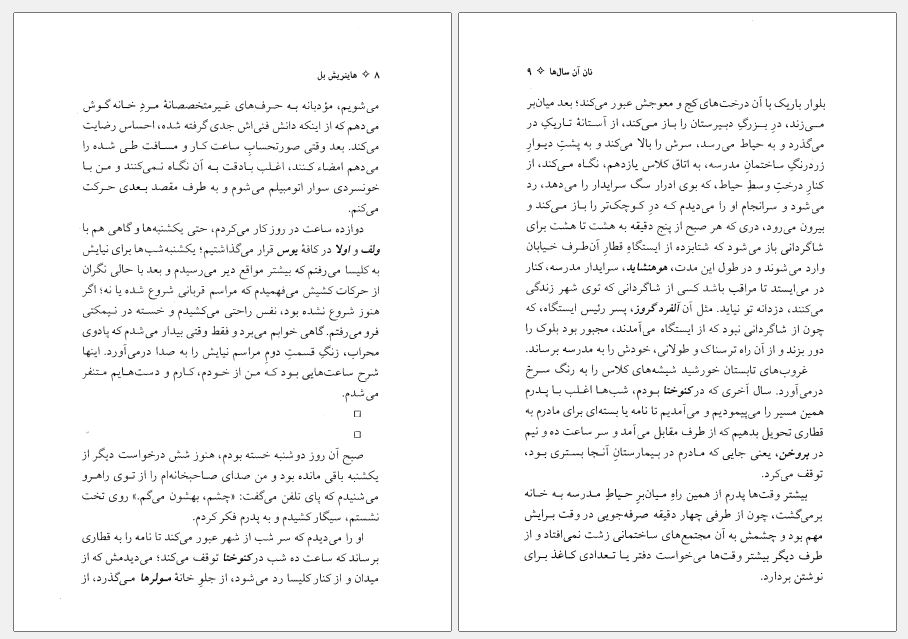 ۸ ✧ هاینریش بل
می‌شویم، مؤدبانه به حرف‌های غیرمتخصصانهٔ مردِ خانه گوش
می‌دهم که از اینکه دانش فنی‌اش جدی گرفته شده، احساس رضایت
می‌کند. بعد وقتی صورتحسابِ ساعت کار و مسافت طی شده را
می‌دهم امضاء کنند، اغلب بادقت به آن نگاه نمی‌کنند و من با
خونسردی سوار اتومبیلم می‌شوم و به طرف مقصد بعدی حرکت
می‌کنم.
دوازده ساعت در روز کار می‌کردم، حتی یکشنبه‌ها و گاهی هم با
ولف و اولا در کافهٔ یوس قرار می‌گذاشتیم؛ یکشنبه‌شب‌ها برای نیایش
به کلیسا می‌رفتم که بیشتر مواقع دیر می‌رسیدم و بعد با حالی نگران
از حرکات کشیش می‌فهمیدم که مراسم قربانی شروع شده یا نه؛ اگر
هنوز شروع نشده بود، نفس راحتی می‌کشیدم و خسته در نیمکتی
فرو می‌رفتم. گاهی خوابم می‌برد و فقط وقتی بیدار می‌شدم که پادوی
محراب، زنگِ قسمتِ دومِ مراسم نیایش را به صدا درمی‌آورد. اینها
شرح ساعت‌هایی بود که من از خودم، کارم و دست‌هایم متنفر
می‌شدم.
□
□
صبح آن روز دوشنبه خسته بودم، هنوز شش درخواست دیگر از
یکشنبه باقی مانده بود و من صدای صاحبخانه‌ام را از توی راهرو
می‌شنیدم که پای تلفن می‌گفت: «چشم، بهشون می‌گم.» روی تخت
نشستم، سیگار کشیدم و به پدرم فکر کردم.
او را می‌دیدم که سر شب از شهر عبور می‌کند تا نامه را به قطاری
برساند که ساعت ده شب در کنوختا توقف می‌کند؛ می‌دیدمش که از
میدان و از کنار کلیسا رد می‌شود، از جلوِ خانهٔ مولرها می‌گذرد، از
نان آن سال‌ها ✧ ۹
بلوار باریک با آن درخت‌های کج و معوجش عبور می‌کند؛ بعد میان‌بر
می‌زند، درِ بزرگِ دبیرستان را باز می‌کند، از آستانهٔ تاریکِ در
می‌گذرد و به حیاط می‌رسد، سرش را بالا می‌کند و به پشتِ دیوارِ
زردرنگِ ساختمانِ مدرسه، به اتاق کلاس یازدهم، نگاه می‌کند، از
کنارِ درختِ وسطِ حیاط، که بوی ادرار سگ سرایدار را می‌دهد، رد
می‌شود و سرانجام او را می‌دیدم که درِ کوچک‌تر را باز می‌کند و
بیرون می‌رود، دری که هر صبح از پنج دقیقه به هشت تا هشت برای
شاگردانی باز می‌شود که شتابزده از ایستگاهِ قطارِ آن‌طرف خیابان
وارد می‌شوند و در طول این مدت، هوهنشاید، سرایدار مدرسه، کنار
در می‌ایستد تا مراقب باشد کسی از شاگردانی که توی شهر زندگی
می‌کنند، دزدانه تو نیاید. مثل آن آلفرد گروز، پسر رئیس ایستگاه، که
چون از شاگردانی نبود که از ایستگاه می‌آمدند، مجبور بود بلوک را
دور بزند و از آن راه ترسناک و طولانی، خودش را به مدرسه برساند.
غروب‌های تابستان خورشید شیشه‌های کلاس را به رنگ سرخ
درمی‌آورد. سال آخری که در کنوختا بودم، شب‌ها اغلب با پدرم
همین مسیر را می‌پیمودیم و می‌آمدیم تا نامه یا بسته‌ای برای مادرم به
قطاری تحویل بدهیم که از طرف مقابل می‌آمد و سر ساعت ده و نیم
در بروخن، یعنی جایی که مادرم در بیمارستانِ آنجا بستری بود،
توقف می‌کرد.
بیشتر وقت‌ها پدرم از همین راهِ میان‌بر حیاطِ مدرسه به خانه
برمی‌گشت، چون از طرفی چهار دقیقه صرفه‌جویی در وقت برایش
مهم بود و چشمش به آن مجتمع‌های ساختمانی زشت نمی‌افتاد و از
طرف دیگر بیشتر وقت‌ها می‌خواست دفتر یا تعدادی کاغذ برای
نوشتن بردارد.